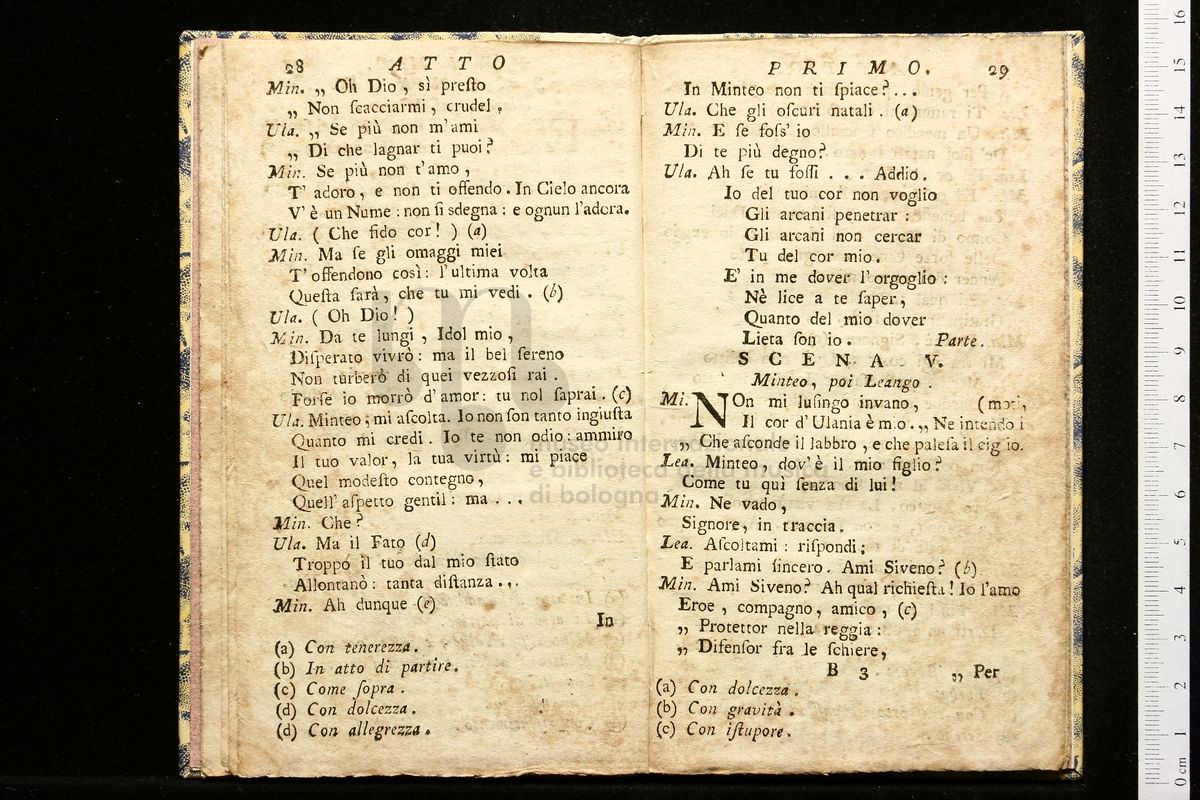 28 A T T O
Min. „ Oh Dio, sì preſto
„ Non ſcacciarmi, crudel,
Ula. „ Se più non m'ami
„ Di che lagnar ti puoi?
Min. Se più non t'amo,
T' adoro, e non ti offendo. In Cielo ancora
V' è un Nume: non ſi sdegna: e ognun l'adora.
Ula. ( Che fido cor! ) (a)
Min. Ma ſe gli omaggi miei
T' offendono così: l'ultima volta
Queſta ſarà, che tu mi vedi. (b)
Ula. ( Oh Dio! )
Min. Da te lungi, Idol mio,
Diſperato vivrò: ma il bel ſereno
Non turberò di quei vezzoſi rai.
Forſe io morrò d'amor: tu nol ſaprai. (c)
Ula. Minteo; mi aſcolta. Io non ſon tanto ingiuſta
Quanto mi credi. Io te non odio: ammiro
Il tuo valor, la tua virtù: mi piace
Quel modeſto contegno,
Quell' aſpetto gentil: ma . . .
Min. Che?
Ula. Ma il Fato (d)
Troppo il tuo dal mio ſtato
Allontanò: tanta diſtanza . . .
Min. Ah dunque (e)
In
(a) Con tenerezza.
(b) In atto di partire.
(c) Come ſopra.
(d) Con dolcezza.
(d) Con allegrezza.
P R I M O. 29
In Minteo non ti ſpiace? . . .
Ula. Che gli oſcuri natali. (a)
Min. E ſe foſs' io
Di te più degno?
Ula. Ah ſe tu foſſi . . . Addio.
Io del tuo cor non voglio
Gli arcani penetrar:
Gli arcani non cercar
Tu del cor mio.
E' in me dover l'orgoglio:
Nè lice a te ſaper,
Quanto del mio dover
Lieta ſon io. Parte.
S C E N A V.
Minteo, poi Leango.
Mi. NOn mi luſingo invano, (moti,
Il cor d'Ulania è mio. „ Ne intendo i
„ Che aſconde il labbro, e che paleſa il ciglio.
Lea. Minteo, dov'è il mio figlio?
Come tu quì ſenza di lui!
Min. Ne vado,
Signore, in traccia.
Lea. Aſcoltami: riſpondi;
E parlami ſincero. Ami Siveno? (b)
Min. Ami Siveno? Ah qual richieſta! Io l'amo
Eroe, compagno, amico, (c)
„ Protettor nella reggia:
„ Difenſor fra le ſchiere,
B 3 „ Per
(a) Con dolcezza.
(b) Con gravità.
(c) Con iſtupore.
museo internazionale
e biblioteca della musica
di bologna
0 cm 1 2 3 4 5 6 7 8 9 10 11 12 13 14 15 16